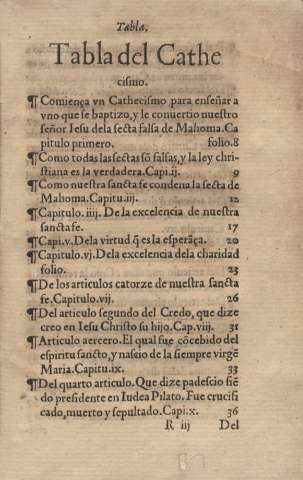 Tabla.
Tabla del Cathe
cismo.
¶ Comiença vn Cathecismo para enseñar a
vno que se baptizo, y le conuertio nuestro
señor Iesu dela secta falsa de Mahoma. Ca
pitulo primero. folio.8
¶ Como todas las sectas sõ falsas, y la ley chri-
stiana es la verdadera. Capi.ij. 9
¶ Como nuestra sancta fe condena la secta de
Mahoma. Capitu.iij. 12
¶ Capitulo. iiij. De la excelencia de nuestra
sancta fe. 17
¶ Capi.v. Dela virtud q̃ es la esperãça. 20
¶ Capitulo.vj. Dela excelencia dela charidad
folio. 23
¶ De los articulos catorze de nuestra sancta
fe. Capitulo.vij. 26
¶ Del articulo segundo del Credo, que dize
creo en Iesu Christo su hijo. Cap.viij. 31
¶ Articulo aercero. El qual fue cõcebido del
espiritu sancto, y nascio de la siempre virgẽ
Maria. Capitu.ix. 33
¶ Del quarto articulo. Que dize padescio siẽ-
do presidente en Iudea Pilato. Fue crucifi
cado, muerto y sepultado. Capi.x. 36
R iij Del